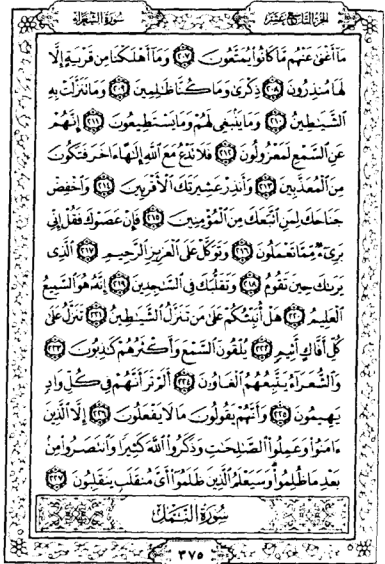 الجزء التاسع عشر
سورة الشعراء
مَآ أَغْنَىٰ عَنْهُم مَّا كَانُوا۟ يُمَتَّعُونَ ٢٠٧ وَمَآ أَهْلَكْنَا مِن قَرْيَةٍ إِلَّا
لَهَا مُنذِرُونَ ٢٠٨ ذِكْرَىٰ وَمَا كُنَّا ظَـٰلِمِينَ ٢٠٩ وَمَا تَنَزَّلَتْ بِهِ
ٱلشَّيَـٰطِينُ ٢١٠ وَمَا يَنۢبَغِى لَهُمْ وَمَا يَسْتَطِيعُونَ ٢١١ إِنَّهُمْ
عَنِ ٱلسَّمْعِ لَمَعْزُولُونَ ٢١٢ فَلَا تَدْعُ مَعَ ٱللَّهِ إِلَـٰهًا ءَاخَرَ فَتَكُونَ
مِنَ ٱلْمُعَذَّبِينَ ٢١٣ وَأَنذِرْ عَشِيرَتَكَ ٱلْأَقْرَبِينَ ٢١٤ وَٱخْفِضْ
جَنَاحَكَ لِمَنِ ٱتَّبَعَكَ مِنَ ٱلْمُؤْمِنِينَ ٢١٥ فَإِنْ عَصَوْكَ فَقُلْ إِنِّى
بَرِىٓءٌ مِّمَّا تَعْمَلُونَ ٢١٦ وَتَوَكَّلْ عَلَى ٱلْعَزِيزِ ٱلرَّحِيمِ ٢١٧ ٱلَّذِى
يَرَىٰكَ حِينَ تَقُومُ ٢١٨ وَتَقَلُّبَكَ فِى ٱلسَّـٰجِدِينَ ٢١٩ إِنَّهُۥ هُوَ ٱلسَّمِيعُ
ٱلْعَلِيمُ ٢٢٠ هَلْ أُنَبِّئُكُمْ عَلَىٰ مَن تَنَزَّلُ ٱلشَّيَـٰطِينُ ٢٢١ تَنَزَّلُ عَلَىٰ
كُلِّ أَفَّاكٍ أَثِيمٍ ٢٢٢ يُلْقُونَ ٱلسَّمْعَ وَأَكْثَرُهُمْ كَـٰذِبُونَ ٢٢٣
وَٱلشُّعَرَآءُ يَتَّبِعُهُمُ ٱلْغَاوُۥنَ ٢٢٤ أَلَمْ تَرَ أَنَّهُمْ فِى كُلِّ وَادٍ
يَهِيمُونَ ٢٢٥ وَأَنَّهُمْ يَقُولُونَ مَا لَا يَفْعَلُونَ ٢٢٦ إِلَّا ٱلَّذِينَ
ءَامَنُوا۟ وَعَمِلُوا۟ ٱلصَّـٰلِحَـٰتِ وَذَكَرُوا۟ ٱللَّهَ كَثِيرًا وَٱنتَصَرُوا۟ مِنۢ
بَعْدِ مَا ظُلِمُوا۟ وَسَيَعْلَمُ ٱلَّذِينَ ظَلَمُوٓا۟ أَىَّ مُنقَلَبٍ يَنقَلِبُونَ ٢٢٧
سُورَةُ النَّمْلِ
٣٧٥